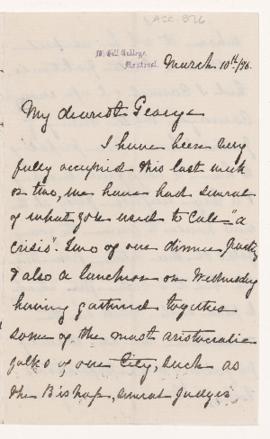 ACC. 876
McGill College,
Montreal.
March 10th/96.
My dearest George
I have been very
fully occupied this last week
or two, we have had several
of what you used to call "a
crisis". Two of our dinner party
& also a luncheon on Wednesday
having gathered together
some of the most aristocratic
folks of our City, such as
the Bishop, several Judges